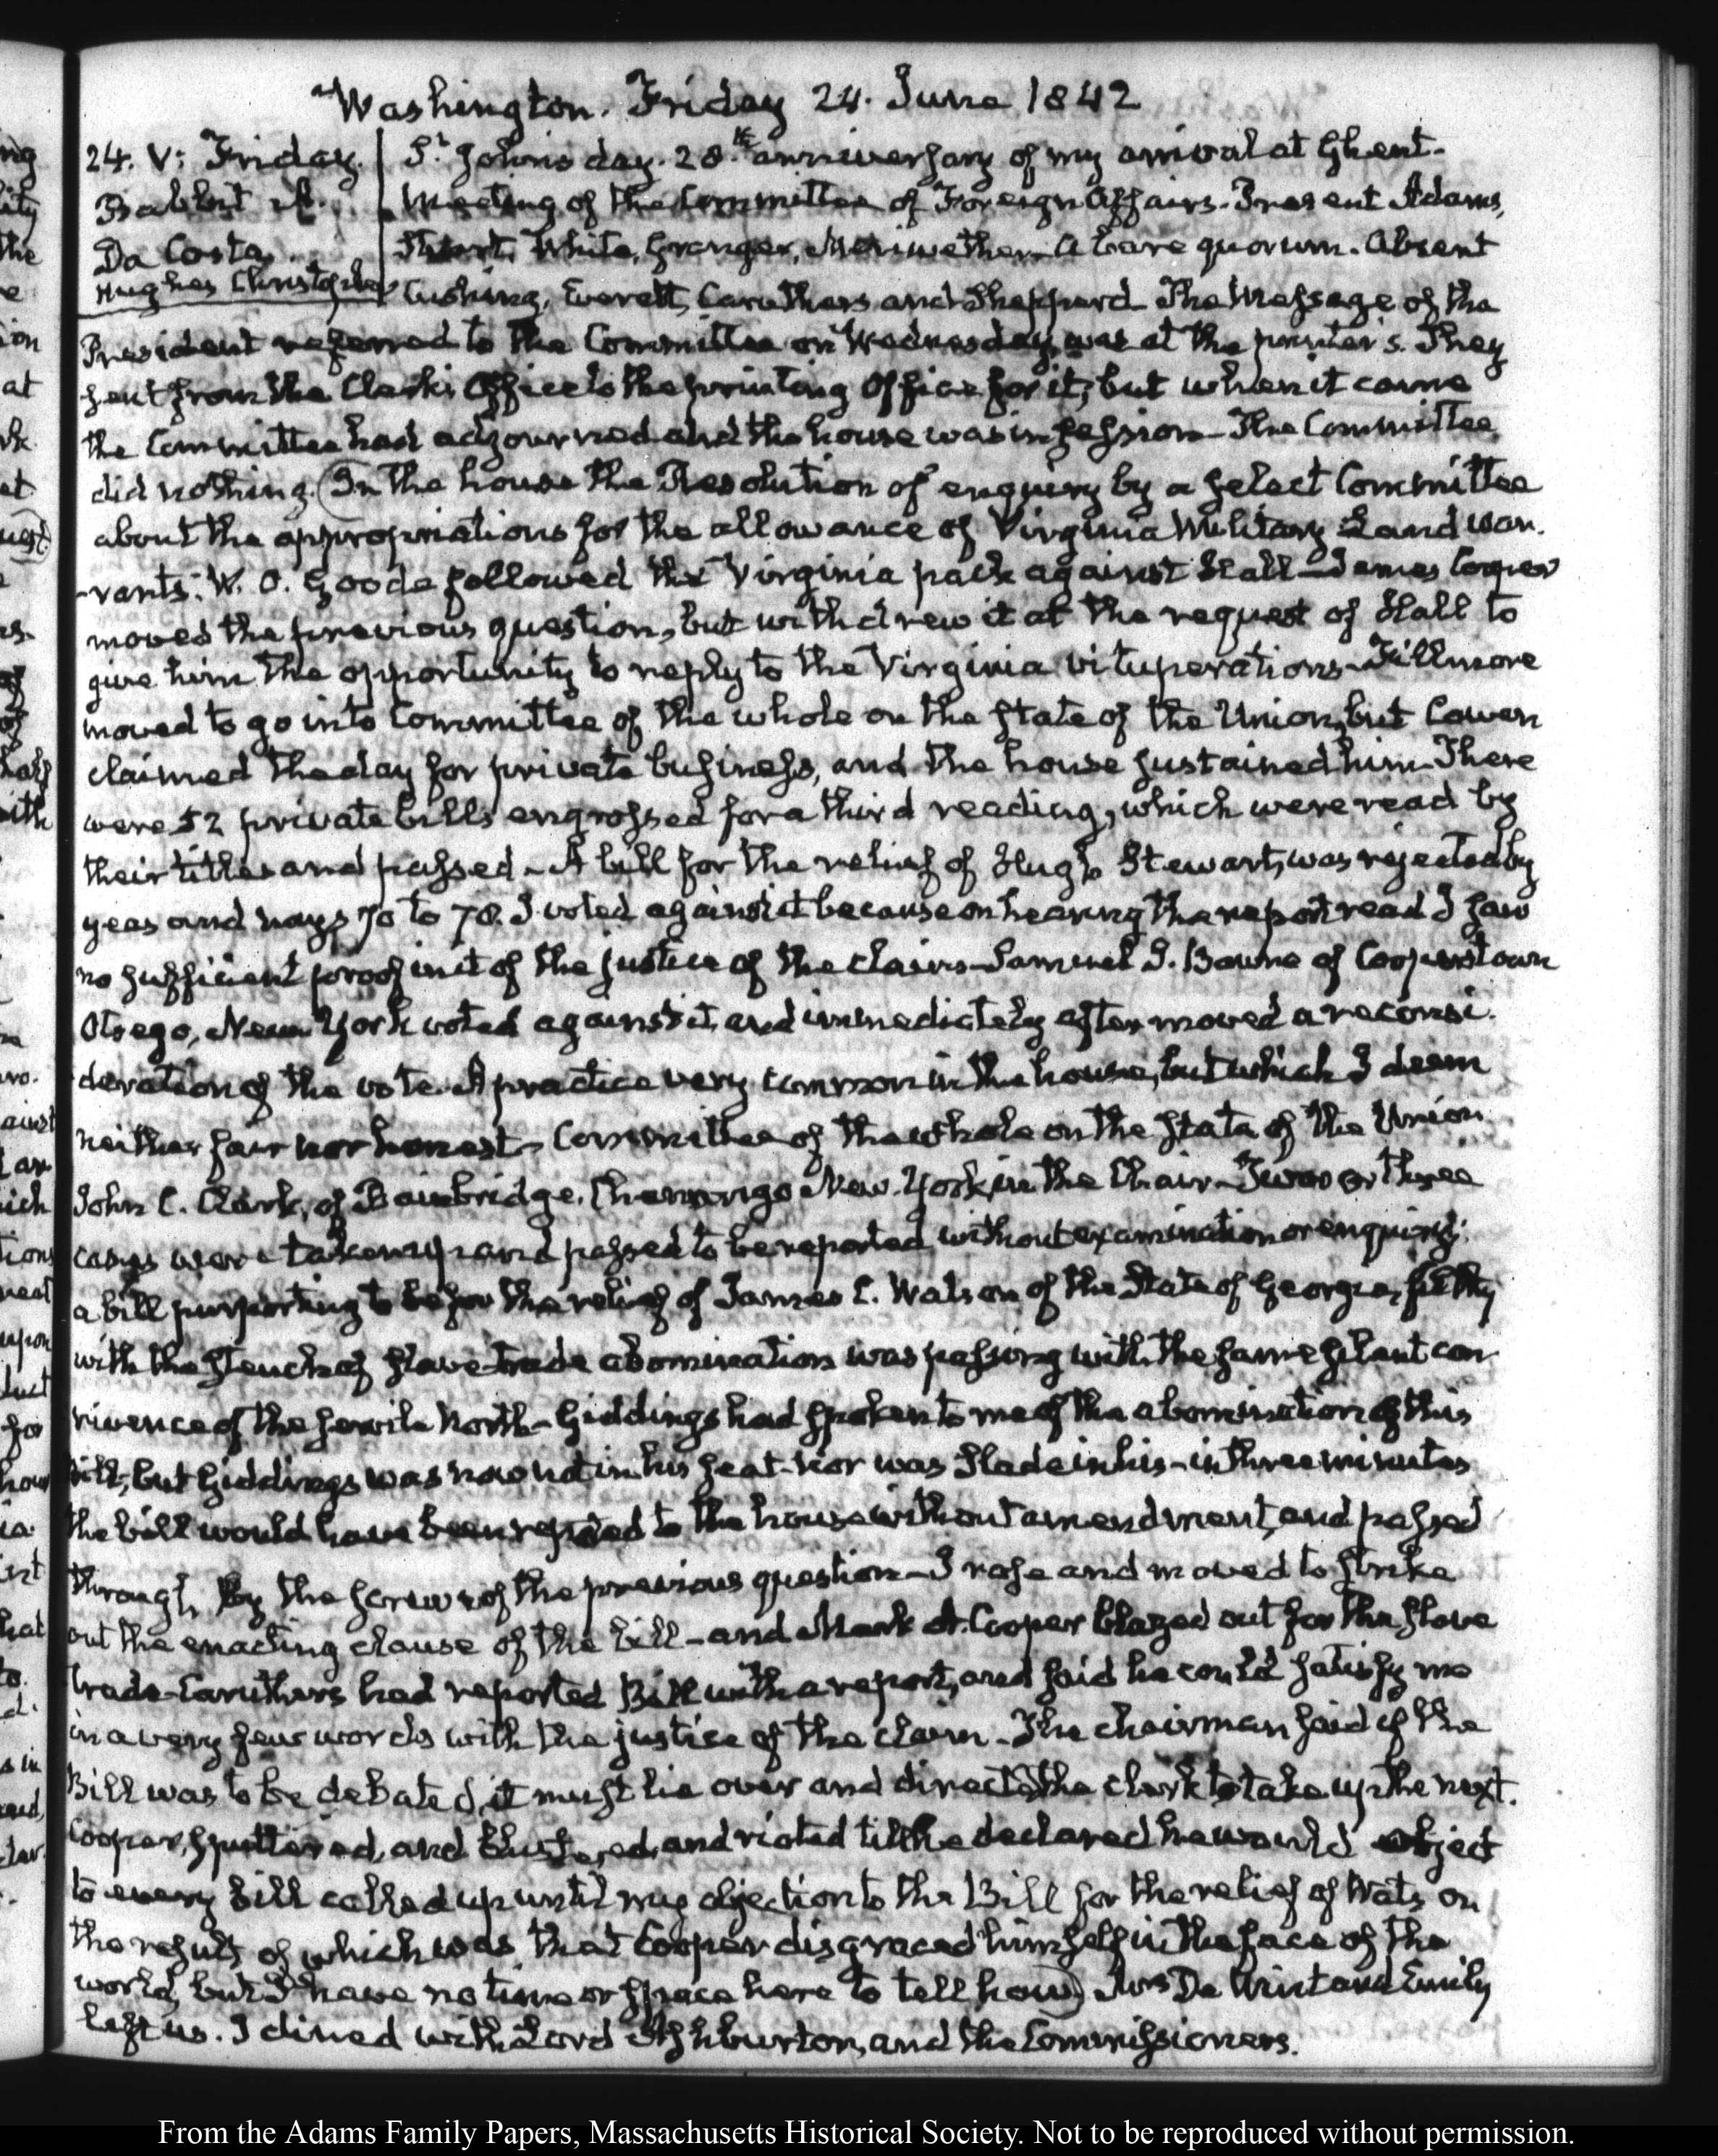 Washington. Friday 24. June 1842
24. V: Friday.
Babbit
Da Costa.
Hughes Christopher
St. John's day. 28.th anniversary of my arrival at Ghent.
Meeting of the Committee of Foreign Affairs. Present Adams,
Stuart, White, Granger, Meriwether. A bare quorum. Absent
Cushing, Everett, Caruthers and Shepperd. The Message of the
President referred to the Committee on Wednesday, was at the printer's. They
sent from the Clerk's Office to the printing Office for it; but when it came
the Committee had adjourned and the house was in session. The Committee
did nothing. (In the house the Resolution of enquiry by a select Committee
about the appropriations for the allowance of Virginia Military Land war-
-rants. W. O. Goode followed the Virginia pack against Hall. James Cooper
moved the previous question, but withdrew it at the request of Hall to
give him the opportunity to reply to the Virginia vituperations. Fillmore
moved to go into Committee of the whole on the state of the Union, but Cowen
claimed the day for private business, and the house sustained him. There
were 52 private bills engrossed for a third reading, which were read by
their titles and passed. A bill for the relief of Hugh Stewart, was rejected by
yeas and nays 70 to 78. I voted against it because on hearing the report read I saw
no sufficient proof in it of the justice of the claim. Samuel S. Bowne of Cooperstown
Otsego, New York voted against it, and immediately after moved a reconsi-
deration of the vote. A practice very common in the house, but which I deem
neither fair nor honest. Committee of the whole on the state of the Union
John C. Clark, of Bainbridge, Chenango New-York, in the Chair. Two or three
cases were taken up and passed to be reported, without examination or enquiry.
a bill purporting to be for the relief of James C. Watson of the State of Georgia, filthy
with the stench of slave-trade abomination was passing with the same silent con-
nivence of the servile North. Giddings had spoken to me of the abomination of this
bill; but Giddings was now not in his seat. nor was Slade in his. in three minutes
the bill would have been reported to the house without amendment, and passed
through by the screws of the previous question. I rose and moved to strike
out the enacting clause of the bill - and Mark A. Cooper blazed out for the slave
trade. Caruthers had reported Bill with a report, and said he could satisfy me
in a very few words with the justice of the claim. The chairman said if the
Bill was to be debated, it must lie over and directed the clerk to take up the next.
Cooper, sputtered, and blustered, and rioted till he declared he would object
to every bill called up until my objection to the Bill for the relief of Watson
the result of which was that Cooper disgraced himself in the face of the
world, but I have no time or space here to tell how) Mrs De Wint and Emily
left us. I dined with Lord Ashburton, and the Commissioners.
From the Adams Family Papers, Massachusetts Historical Society. Not to be reproduced without permission.